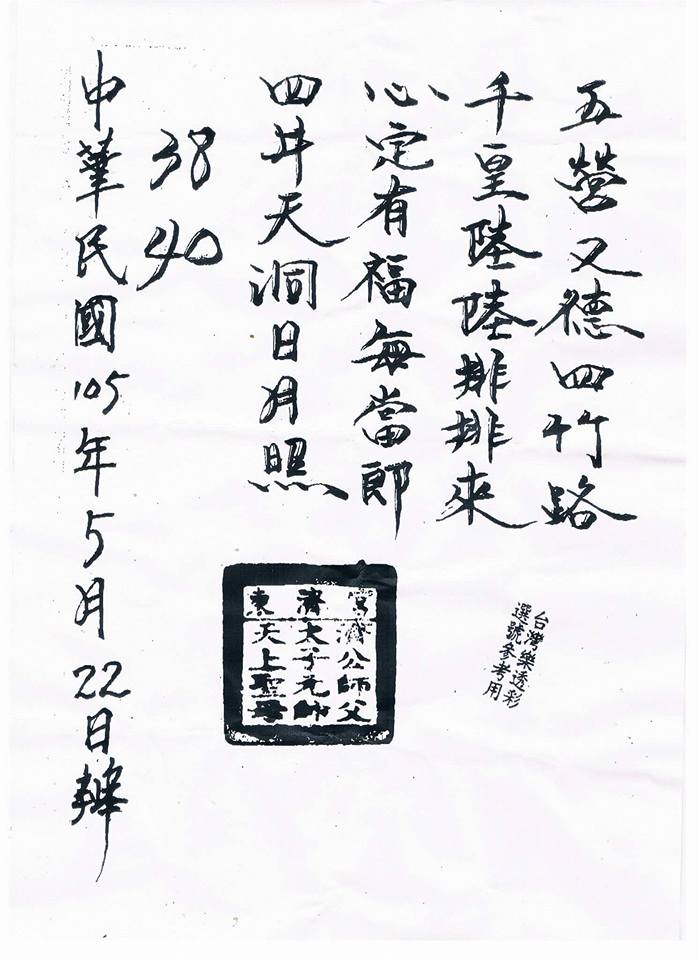 五營又德四竹路
千皇陸陸排排來
心定有福每當郎
四井天洞日月照
38
40
中華民國105年5月22日
東濟宮
濟公師父
太子元帥
天上聖母
台灣樂透彩
選號參考用